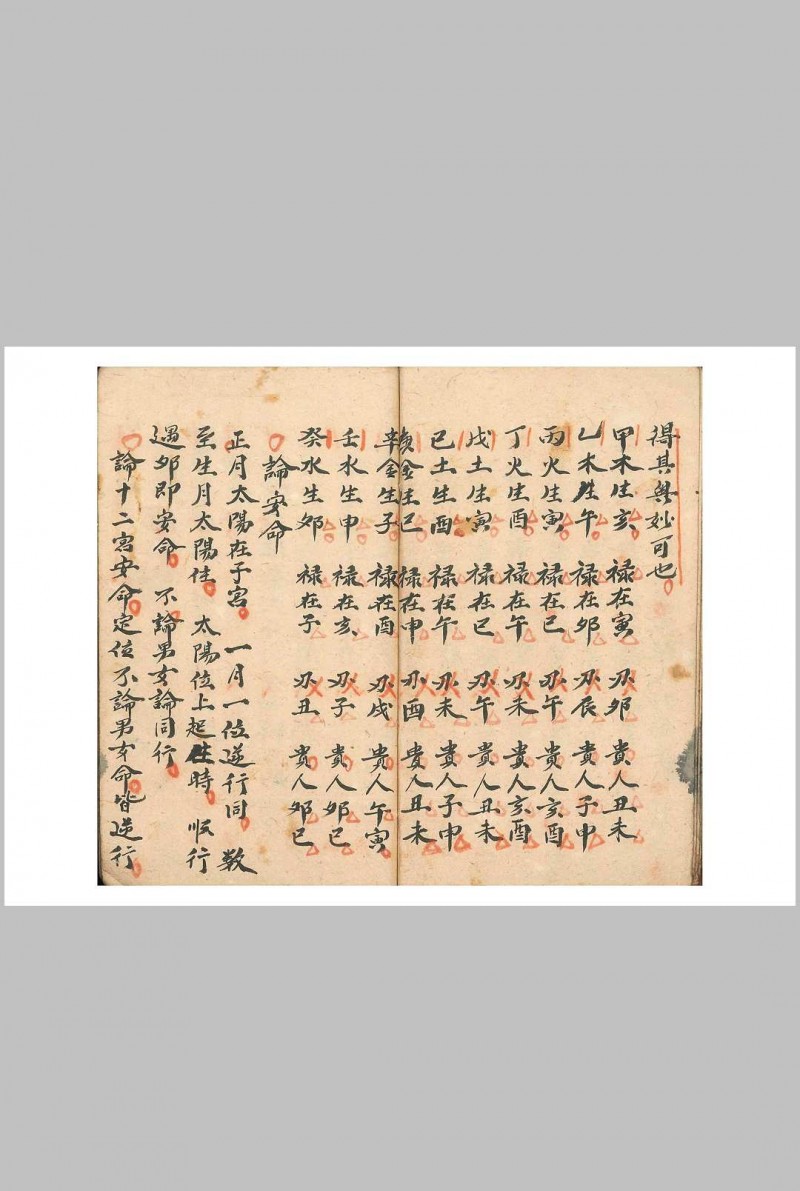 得其奧妙可也
甲木生亥 禄在寅 刃卯 貴人丑未
乙木生午 禄在卯 刃辰 貴人子申
丙火生寅 禄在巳 刃午 貴人亥酉
丁火生酉 禄在午 刃未 貴人亥酉
戊土生寅 禄在巳 刃午 貴人丑未
己土生酉 禄在午 刃未 貴人子申
庚金生巳 禄在申 刃酉 貴人丑未
辛金生子 禄在酉 刃戌 貴人午寅
壬水生申 禄在亥 刃子 貴人卯巳
癸水生卯 禄在子 刃丑 貴人卯巳
論安命
正月太陽在子宮 一月一位逆行同 数
至生月太陽住 太陽位上起生時 順行
遇卯即安命 不論男女論同行
論十二宮安命定位不論男女命皆逆行